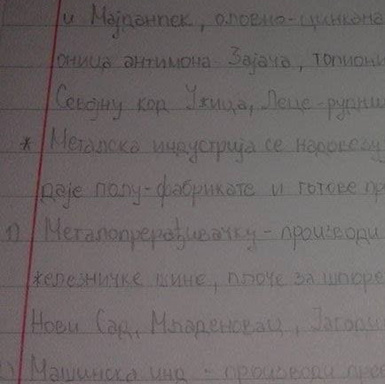 и Мајданпек, оловно-цинкана
оница антимона Зајача, топиони
Севојну код Ужица, Леце-рудни
* Металска индустрија се
даје полу-фабрикате и готове пр
1) Металопрерађивачку - производи
железничке шине, плоче за шпоре
Нови Сад, Младеновац, Јагоди
) Машинска инд - производи